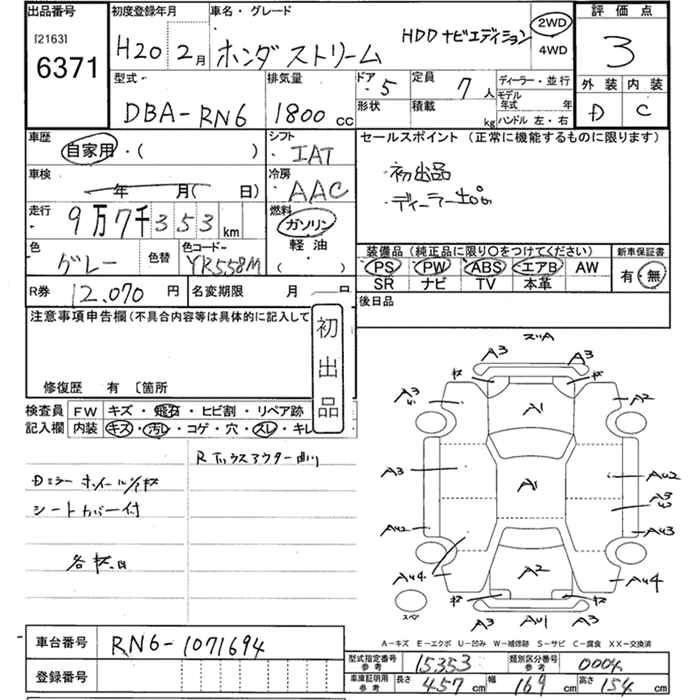 出品番号
[2163]
6371
初度登録年月
H20 2月
車名・グレード
ホンダ ストリーム
HDDナビエディション
2WD
4WD
評価点
3
外装 内装
D C
型式
DBA-RN6
排気量
1800 cc
ドア
5
形状
定員
7人
積載
kg
ディーラー・並行
モデル年式 年
ハンドル 左・右
車歴
自家用・( )
シフト
IAT
車検
年 月( 日)
冷房
AAC
走行
9万7千353 km
燃料
ガソリン
軽油
( )
色
グレー
色替
色コード
YR558M
R券 12,070 円
名変期限 月 日
セールスポイント (正常に機能するものに限ります)
・初出品
・ディーラー
装備品(純正品に限り○をつけてください)
PS PW ABS エアB AW
SR ナビ TV 本革
新車保証書
有・無
後日品
注意事項申告欄(不具合内容等は具体的に記入して
初出品
修復歴 有 〔箇所
検査員記入欄
FW キズ・飛石・ヒビ割・リペア跡
内装 キズ・汚レ・コゲ・穴・スレ・キレ
シートカバー付
A3 A3
A3 A1 A2
A3 A1 A42
A3
A42 A43
A44 A2 A44
A3 A41 A3
スペア
A-キズ E-エクボ U-凹み W-補修跡 S-サビ C-腐食 XX-交換済
車台番号 RN6-1071694
登録番号
型式指定番号 参考 15353
類別区分番号 参考 0004
車庫証明用 参考 長さ 457 cm 幅 169 cm 高さ 154 cm